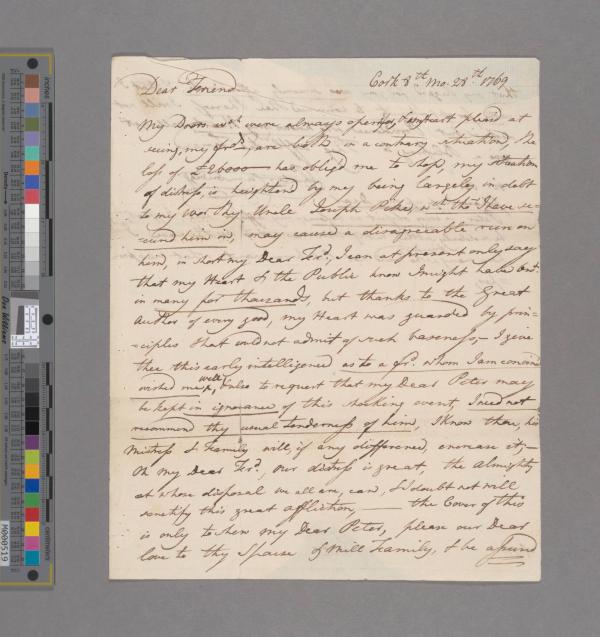 Cork 8th Mo. 28th 1769
Dear Friend
My Doors wch were always open, & my heart pleas'd at
seeing my frds, are both in a contrary situation, The
loss of £26000 has oblig'd me to stop, my situation
of distress, is heighten'd by my being largely in debt
to my worthy Uncle Joseph Pike, wch tho' I have se=
=cured him in, may cause a disagreeable run on
him, in short my Dear Frd, I can at present only say
that my Heart & the Public know I might have
in many for thousands, but thanks to the Great
Author of every good, my Heart was guarded by prin=
=ciples that would not admit of such baseness, – I give
thee this early intelligence as to a frd. whom I am convinced
wished me well, & also to request that my Dear Peter may
be kept in ignorance of this shocking event, I need not
recommend thy usual tenderness of him, I know thou, his
Mistress & Family will, if any difference, encrease it; –
Oh my Dear Frd, our distress is great, the Almighty
at whose disposal we all are, can, & I doubt not will
sanctify this great affliction, —— the Cover of this
is only to shew my Dear Peter, please our Dear
love to thy Spouse & Mill Family, & be assured
inches
centimetres
Density
Don Williams
M000519